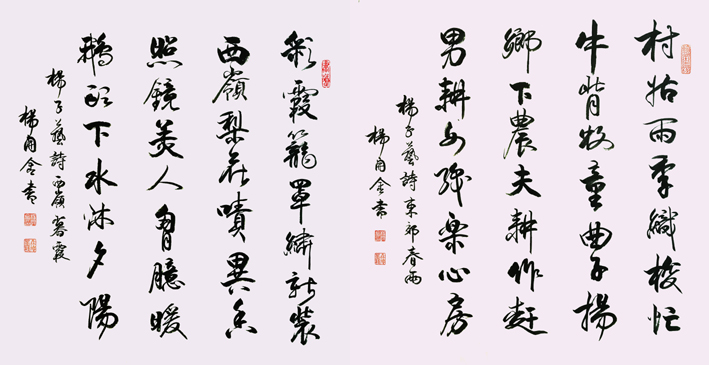 村姑雨季織梭忙
牛背牧童曲子揚
鄉下農夫耕作趕
男耕女織樂心房
楊子藝詩東郊春雨
楊自書
彩霞籠罩繡新裝
西嶺梨花噴異香
照鏡美人胷臆暖
鵝下水沐夕陽
楊子藝詩西嶺暮霞
楊自書